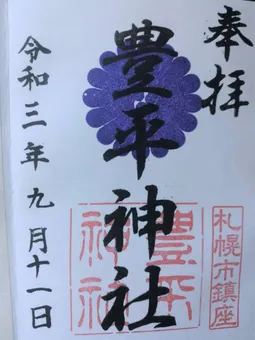 奉拝
豊平神社
令和三年九月十一日
豊平神社
札幌市鎮座